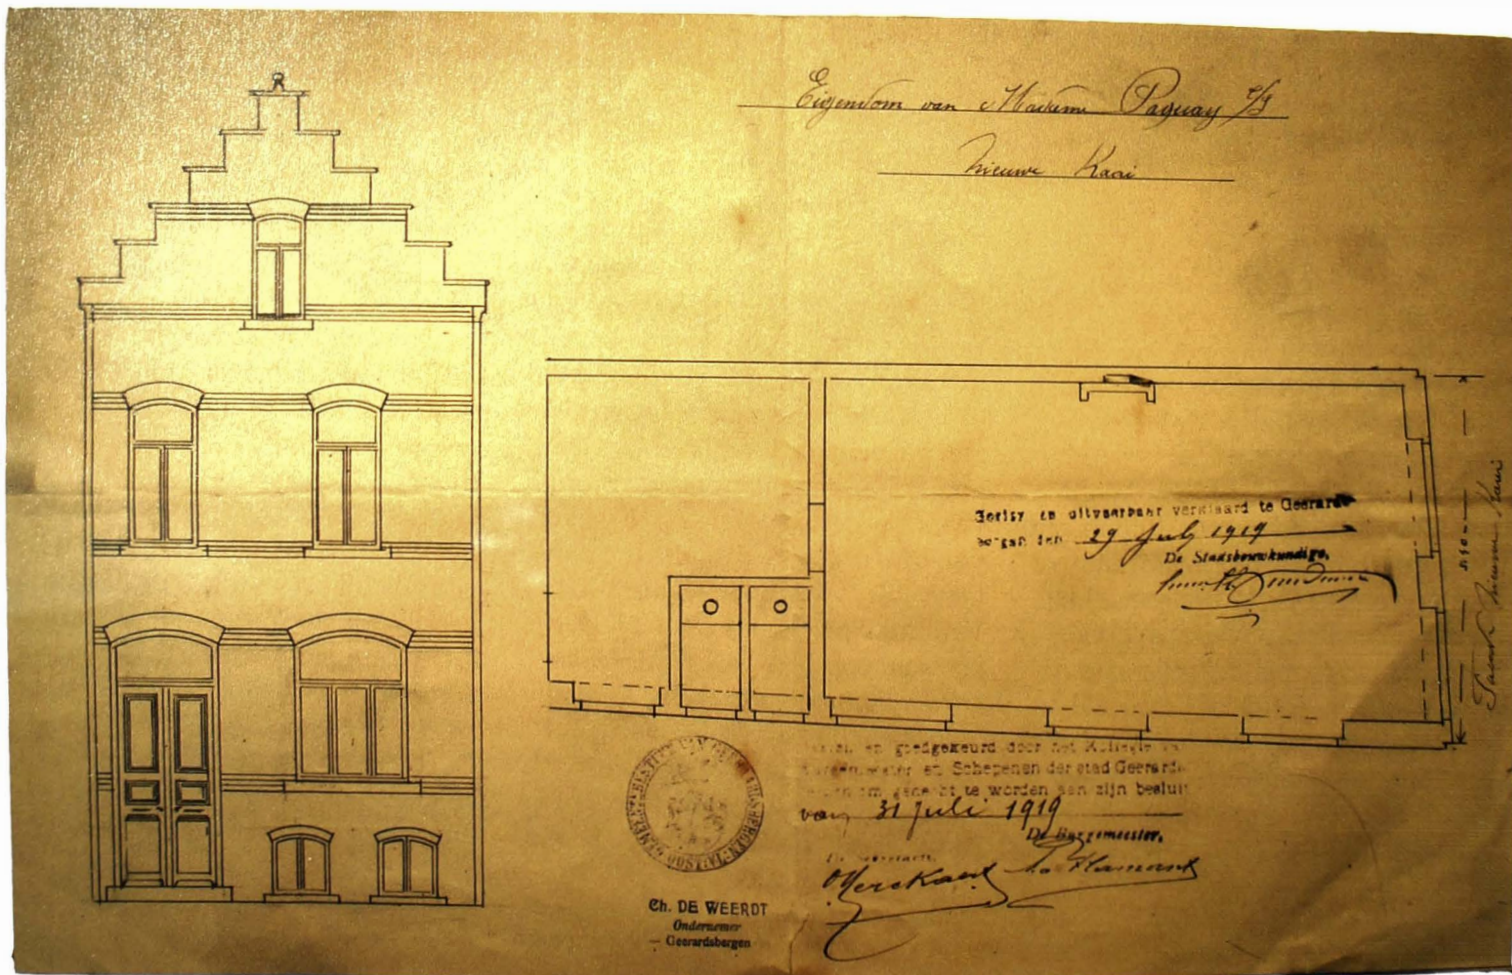 Eigendom van Madame Paquay
Nieuwe Kaai
en uitvoerbaar verklaard te Geerards-
bergen den 29 July 1919
De Stadsbouwkundige,
Nieuwe Kaai
en goedgekeurd door het Kollegie van
Burgemeester en Schepenen der stad Geerards-
om gehecht te worden aan zijn besluit
van 31 juli 1919
De Burgemeester,
De Secretaris,
Ch. DE WEERDT
Ondernemer
Geerardsbergen